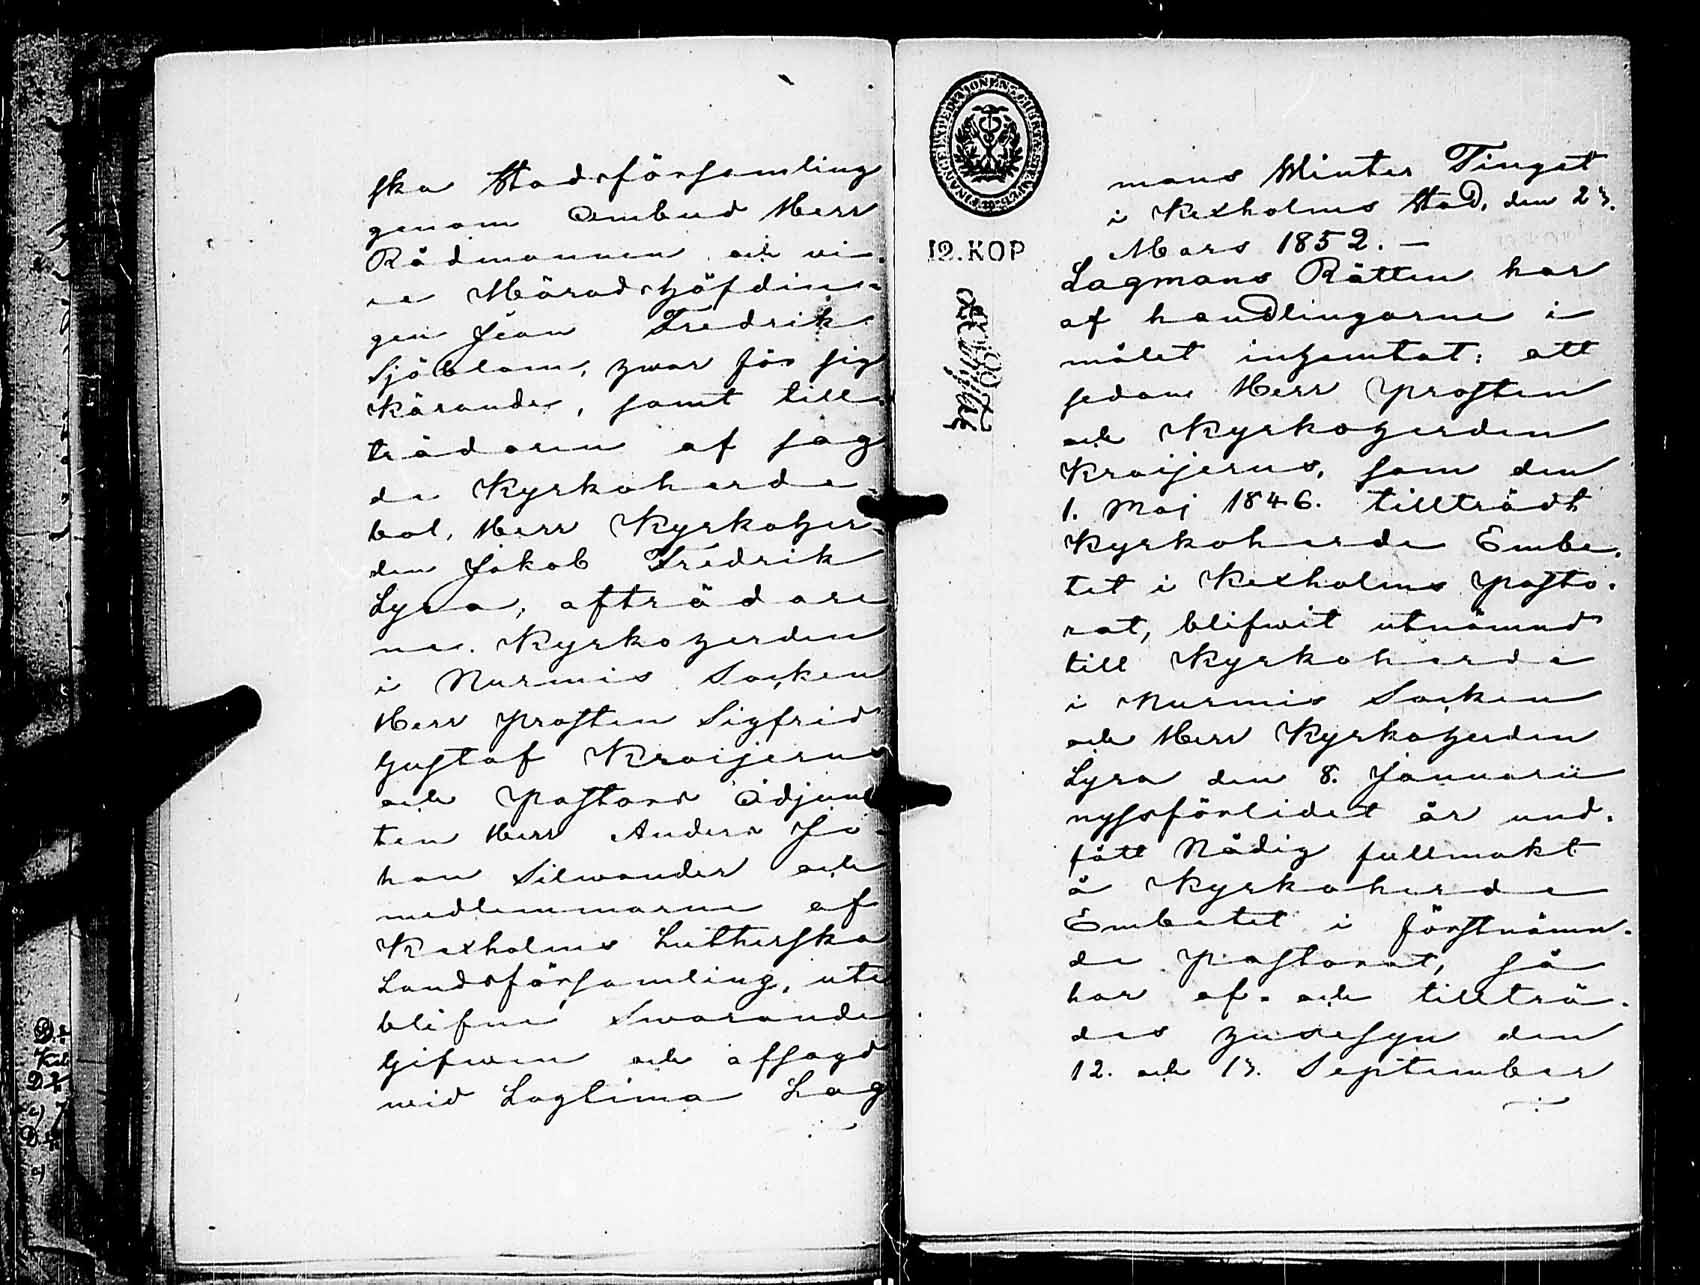 ska Stadsförsamling
genom Ombud Herr
Rådmannen och vi-
ce Häradshöfdin-
gen Jean Fredrik
Sjöblom, hwar för sig
Kärande, samt till-
trädaren af sag
da Kyrkoherde
bol, Herr Kyrkoher-
den Jakob Fredrik
Lyra, afträdare
ne. Kyrkoherden
i Nurmis Socken
Herr Prosten Sigfrid
Gustaf Kroijerus
och Pastors Adjunk
ten Herr Anders Jo-
han Silwander och
medlemmarne af
Kexholms Lutherska
Landsförsamling, ute
blifne Swarande
Gifwen och afsagd
wid Laglima Lag
mans Winter Tinget
i Kexholms Stad, den 23.
Mars 1852. —
12. KOP
Lagmans Rätten har
af handlingarne i
målet inhemtat: att
sedan Herr Prosten
och Kyrkoherden
Kroijerus, som den
1. Maj 1846. tillträdt
Kyrkoherde Embe-
tet i Kexholms Pasto-
rat, blifwit utnämnd
till Kyrkoherde
i Nurmis Socken
och Herr Kyrkoherden
Lyra den 8. Januarii
nyssförlidet år und-
fått Nådig fullmakt
å Kyrkoherde
Embetet i förstnämn-
de Pastorat, så
har af- och tillträ-
des husesyn den
12. och 13. September